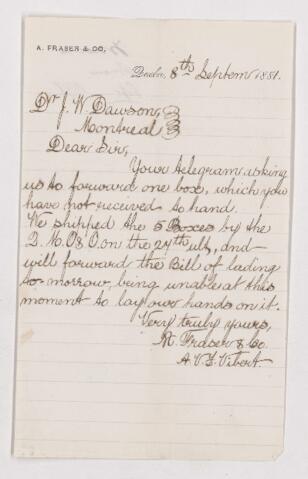 A. FRASER & CO.
Quebec, 8th Septem 1881.
Dr J. W. Dawson,
Montreal
Dear Sir,
Your telegram asking
us to forward one box, which you
have not received to hand.
We shipped the 5 Boxes by the
Q. M. O & O. on the 27th ult, and
will forward the Bill of lading
to-morrow, being unable at this
moment to lay our hands on it.
Very truly yours,
A. Fraser & Co.
A. V. Vibert.